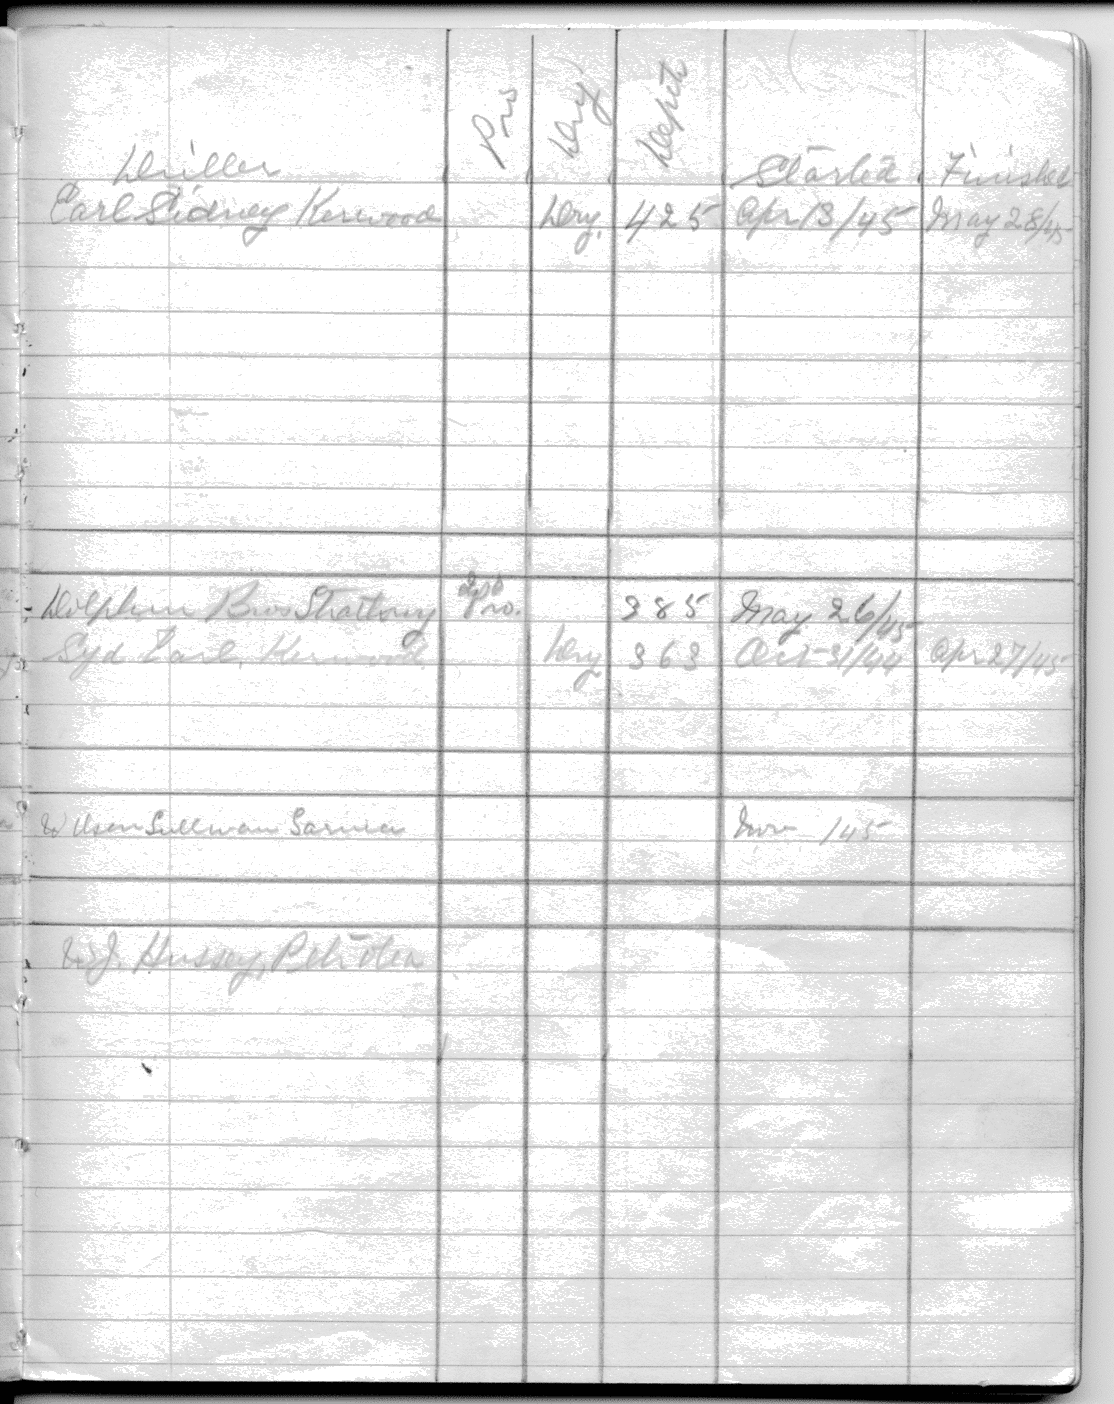 Driller Pro Dry Depth Started Finished
Earl Sidney Kerwood Dry. 425 Apr 13/45 May 28/45
Bros Strathroy Pro. 385 May 26/45
Syd Earl, Kerwood. Dry 363 Oct 31/44 Apr 27/45
Wilson Sullivan Sarnia Nov /45
W.J. Hussey, Petrolea